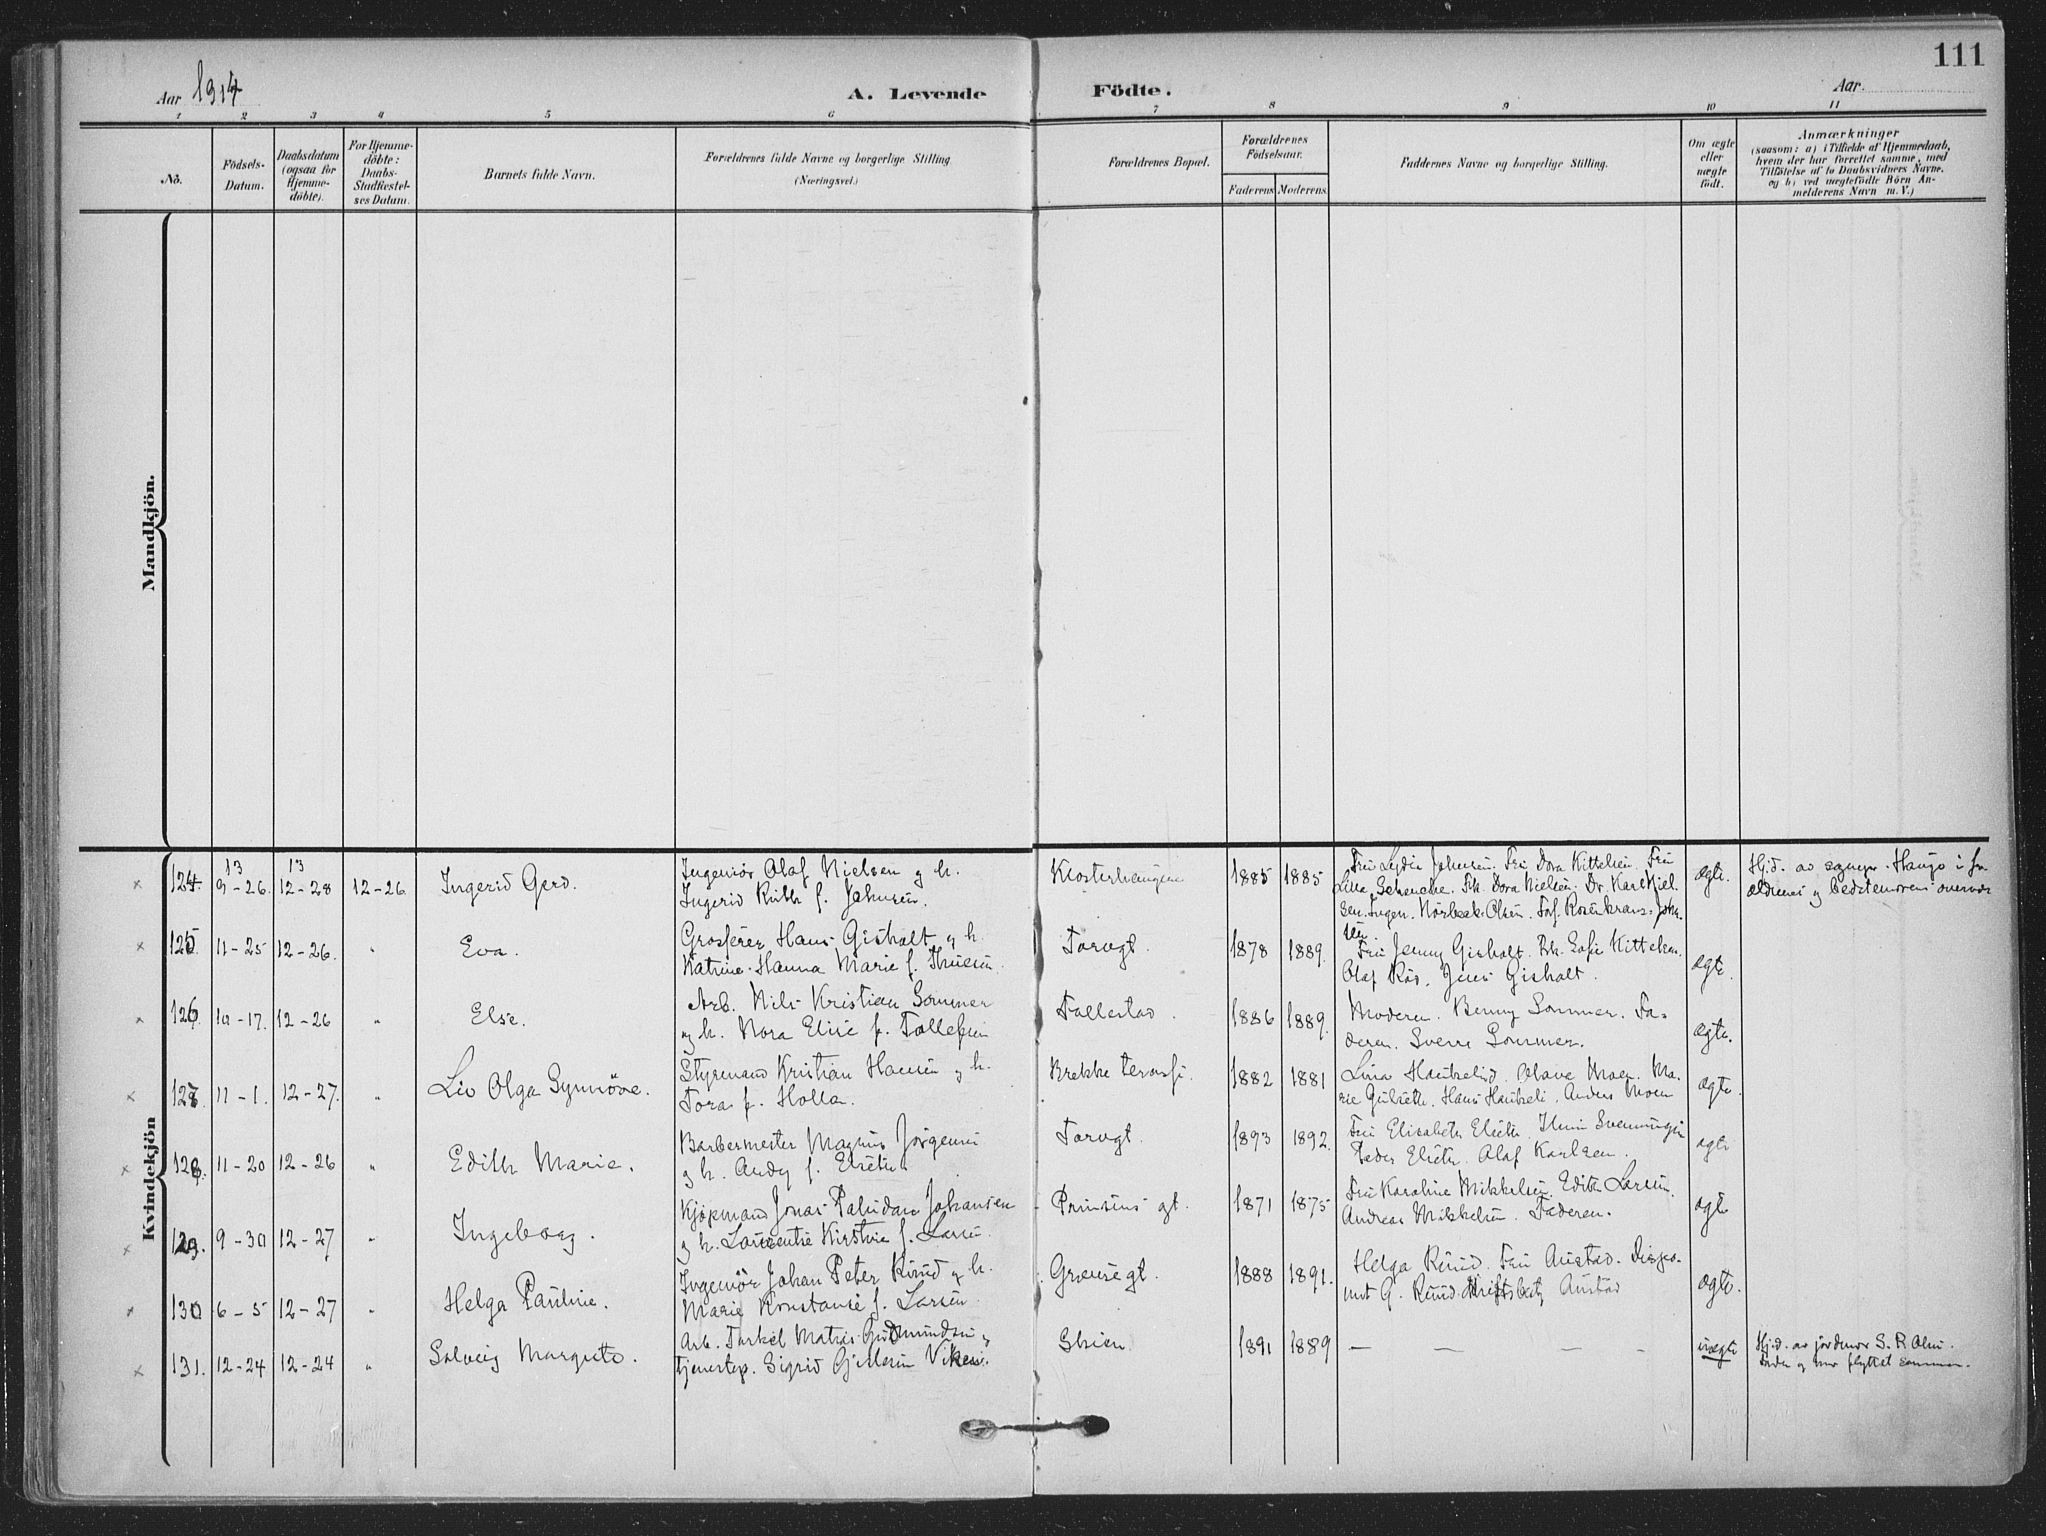 111
Aar 1914
A. Levende Födte.
Aar.
1 2 3 4 5 6 7 8 9 10 11
No.
Födsels-Datum.
Daabsdatum (ogsaa for Hjemme-döbte).
For Hjemme-döbte: Daabs-Stadfæstel-ses Datum.
Barnets fulde Navn.
Forældrenes fulde Navne og borgerlige Stilling (Næringsvei.)
Forældrenes Bopæl.
Forældrenes Födselsaar.
Faderens. Moderens.
Faddernes Navne og borgerlige Stilling.
Om ægte eller uægte födt.
Anmærkninger
(saasom: a) i Tilfælde af Hjemmedaab,
hvem der har forrettet samme, med
Tilföielse af to Daabsvidners Navne.
og b) ved uægtefödte Börn An-
melderens Navn m. V.)
Mandkjön.
Kvindekjön
× 124. 13 13
9-26. 12-28 12-26 Ingerid Gerd.
Ingeniör Olaf Nielsen g h.
Ingerid Ruth f. Jahnsen.
Klosterhaugen 1885 1885
Fru Lydia Jahnsen. Fru Dora Kittelsen. Fru
Lilla Schencke. Frk. Dora Nielsen. Dr. Karl Niel-
sen. Ingen. Nörbeck-Olsen. Prof. Rosenkrans-John-
sen
ægte. Hj.d. av sogнepr. Hauge i fo-
rældrenes og bedstemorens overvær
× 125. 11-25 12-26. " Eva.
Grosserer Hans Gisholt g h.
Katrine Hanna Marie f. Thuesen.
Torvgt. 1878 1889.
Fru Jenny Gisholt. Frk. Sofie Kittelsen.
Olaf Rös. Jens Gisholt.
ægte
× 126. 10-17. 12-26 " Else.
Arb. Nils Kristian Sommer
og h. Nora Elise f. Tollefsen
Follestad. 1886 1889.
Moderen. Benny Sommer. Fa-
deren. Sverre Sommer.
ægte.
× 127. 11-1. 12-27. " Liv Olga Synnöve.
Styrmand Kristian Hansen g h.
Tora f. Holla.
Brekke terasse. 1882 1881
Lina Haukelid. Olave Moen. Ma-
rie Gulseth. Hans Haukeli. Anders Moen
ægte.
× 128. 11-20 12-26 " Edith Marie.
Barbermester Magnus Jörgensen
g h. Andy f. Elseth.
Torvgt. 1893 1892.
Fru Elisabeth Elseth.
Peder Elseth. Olaf Karlsen.
ægte
× 129. 9-30 12-27 " Ingeborg.
Kjöpmand Jonas Paludan Johansen
g h. Laurentse Kirstine f. Larsen.
Prinsens gt. 1871 1875
Fru Karoline Mikkelsen. Edith Larsen.
Andreas Mikkelsen. Faderen.
ægte
× 130 6-5 12-27 " Helga Pauline.
Ingeniör Johan Peter Ruud g h.
Marie Konstanse f. Larsen
Grensegt. 1888 1891.
Helga Ruud. Fru Austad. Dispo-
nent G. Ruud. Austad
ægte.
× 131. 12-24 12-24 " Solveig Margrete.
Arb. Torkel Matias Gudmundsen g
tjenestep. Sigrid Gjellesen Viken.
Skien. 1891 1889 — — — —
uægte Hj.d. av jordmor S. R. Olsen.
Faden g mor flyttet sammen.